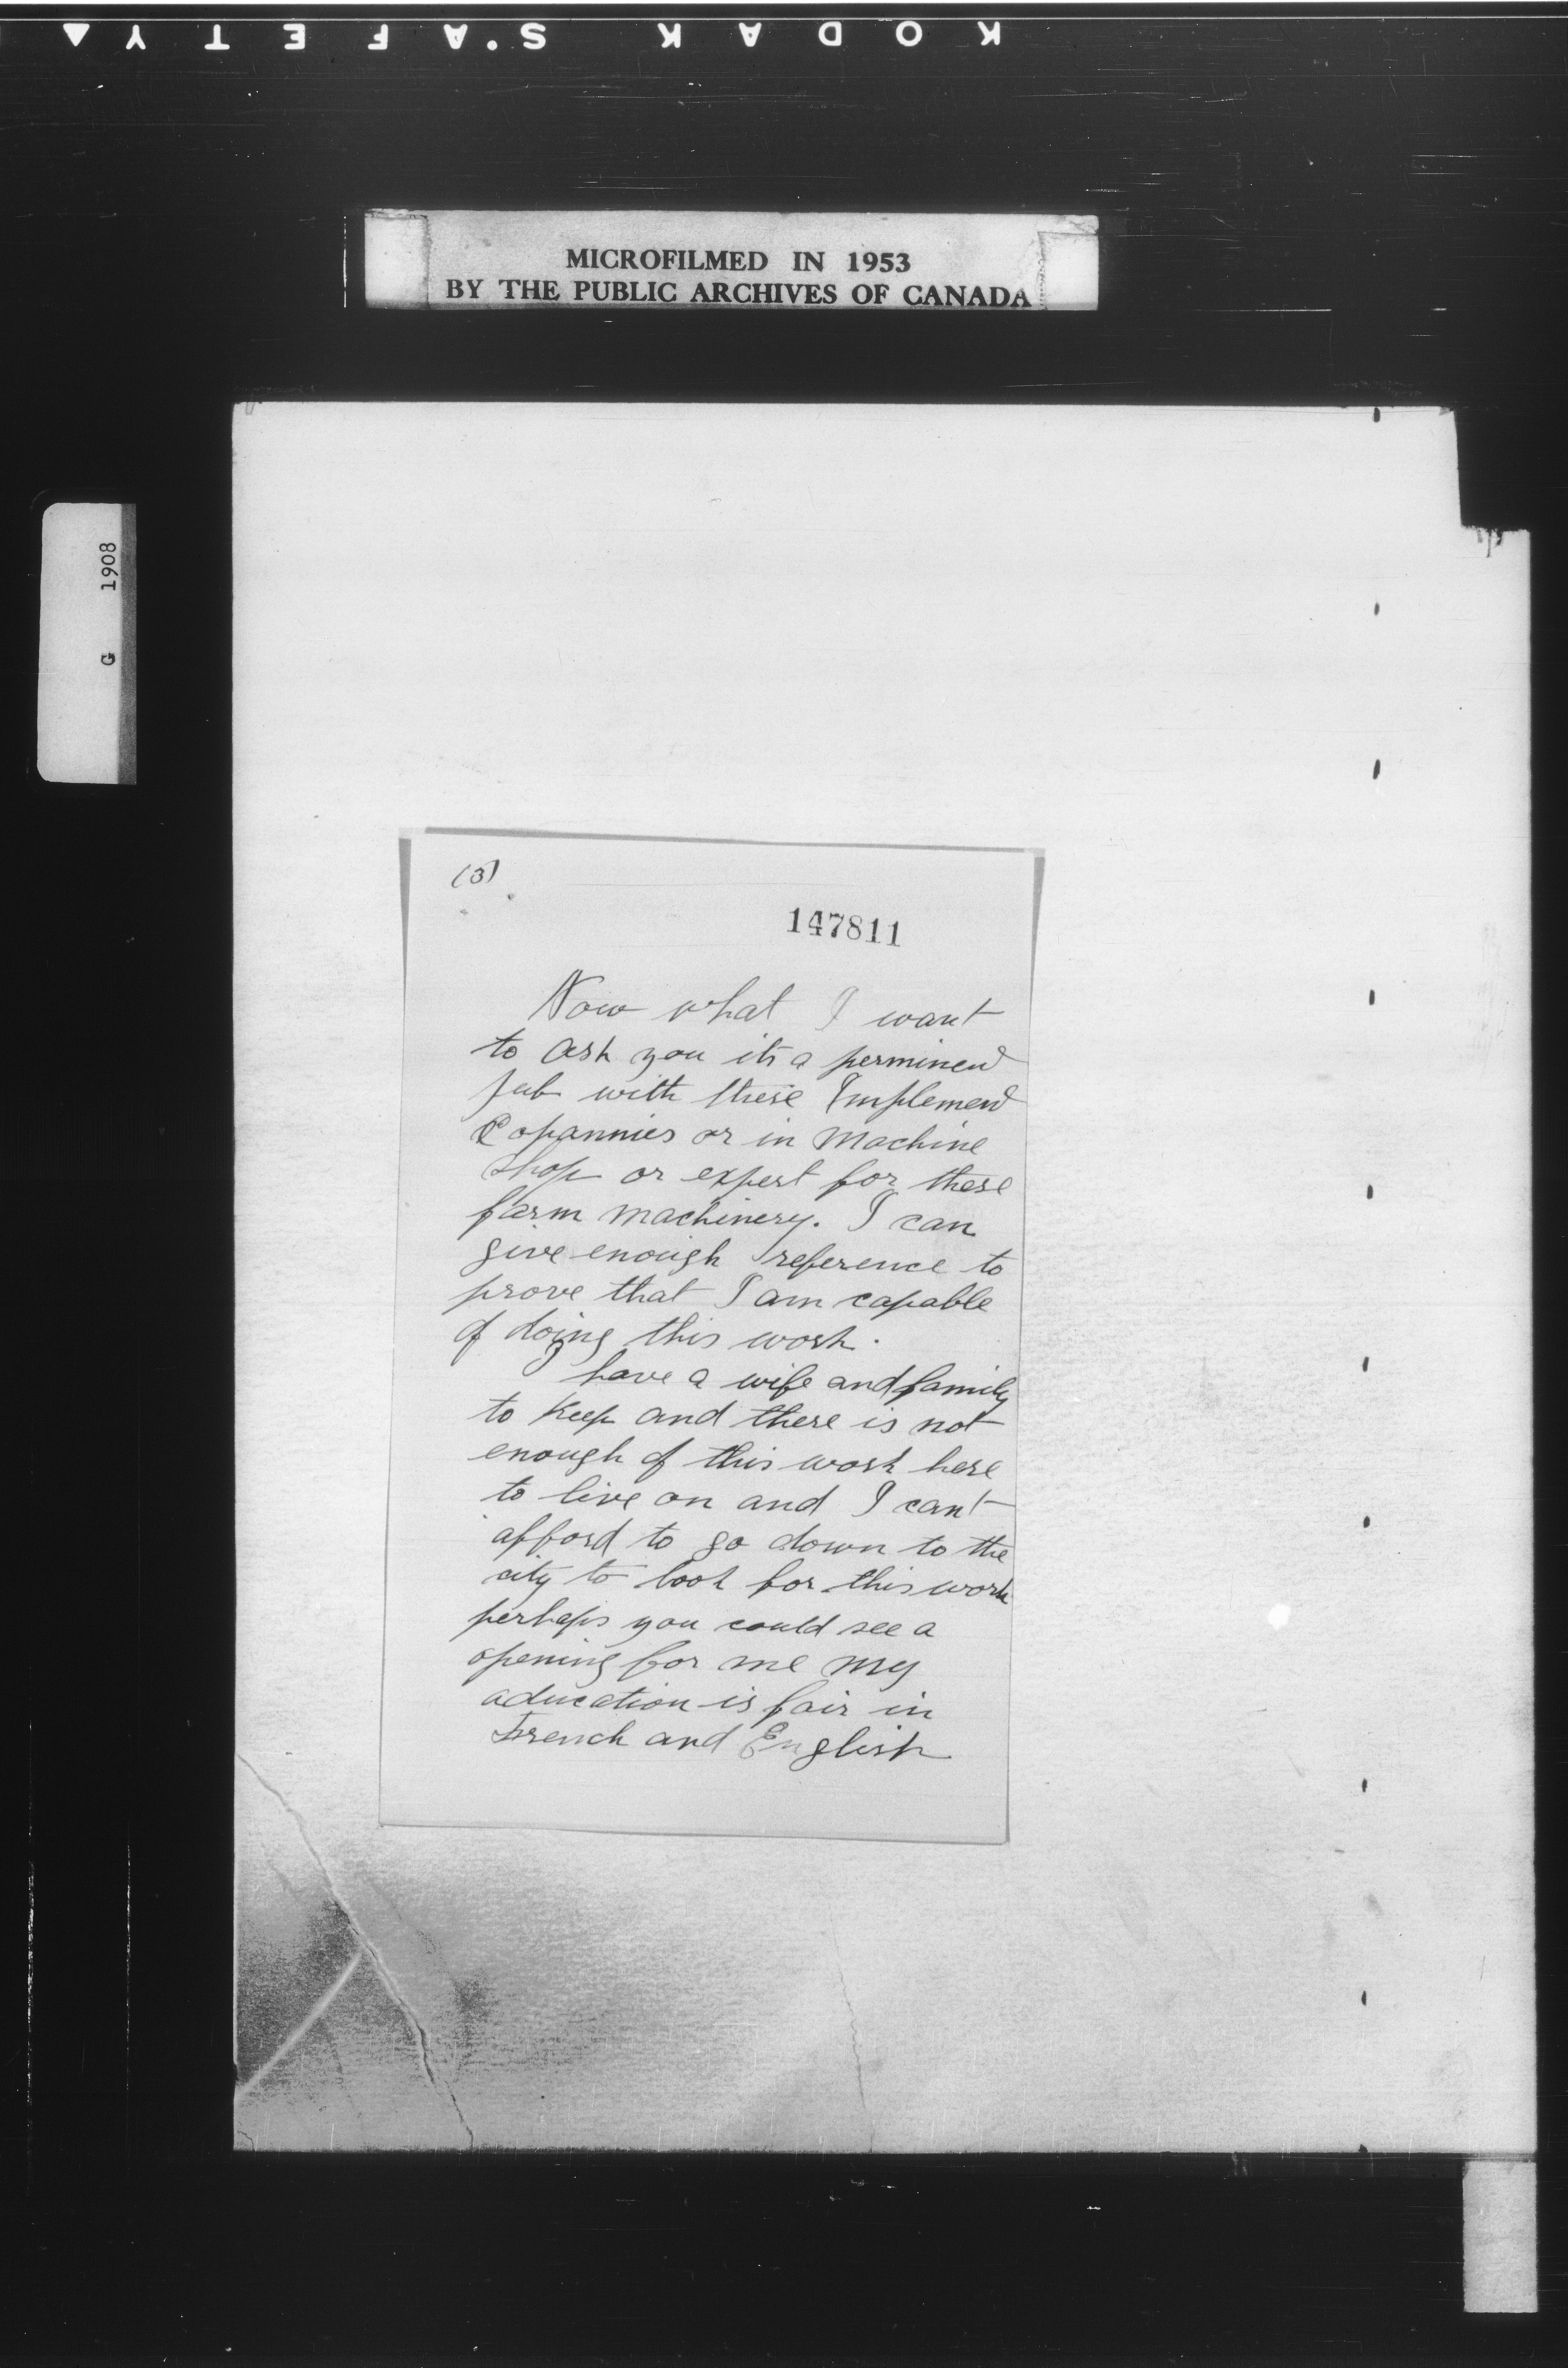 KODAK SAFETY
MICROFILMED IN 1953
BY THE PUBLIC ARCHIVES OF CANADA
G 1908
(3)
147811
Now what I want
to ask you its a perminend
jub with these Implemend
Copannies or in Machine
shop or expert for these
farm machinery. I can
give enough reference to
prove that I am capable
of doing this work.
I have a wife and family
to keep and there is not
enough of this work here
to live on and I can't
afford to go down to the
city to look for this work
perhaps you could see a
opening for me my
aducation is fair in
French and English